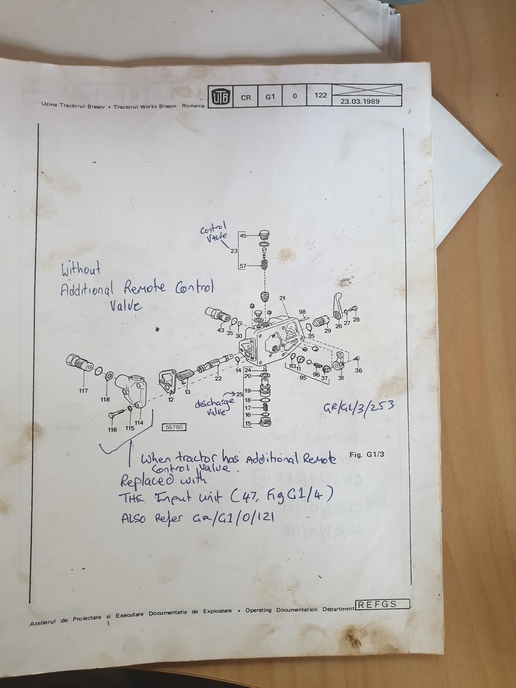 Uzina Tractorul Brasov • Tractorul Works Brasov Romania
UTB CR G1 0 122
23.03.1989
Control
Valve
45
23
57
Without
Additional Remote Control
Valve
21
98
43 35 30
35 29 26 27 28
117
118
116 115 114
12 13 22 14
24
20
25
19
18
17
16
15
10 11
95
96 37 31
36
discharge
valve
55750
GR/G1/3/253
Fig. G1/3
When tractor has Additional Remote
Control Valve.
Replaced with
THE Input unit (47, Fig G1/4)
Also Refer GR/G1/0/121
REFGS
Atelierul de Proiectare si Executare Documentatie de Exploatare • Operating Documentation Department
1